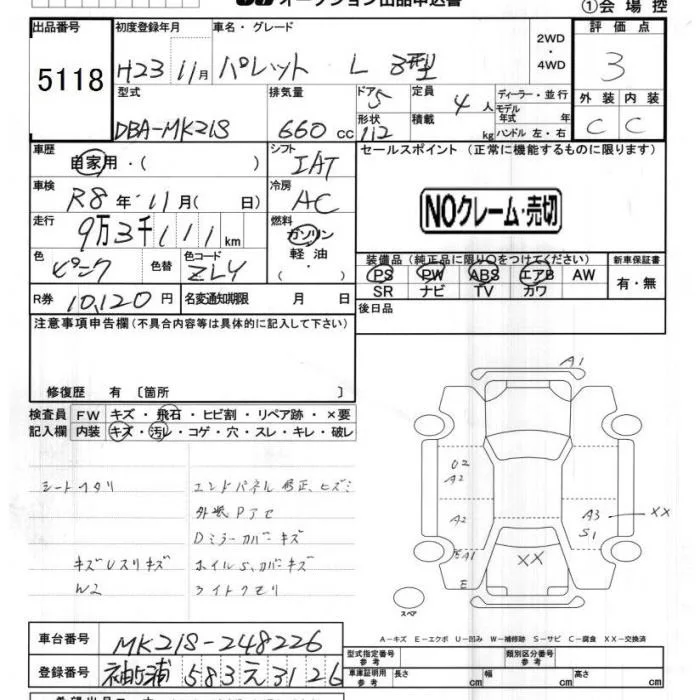 オークション出品申込書
①会場控
出品番号
5118
初度登録年月
H23 11月
車名・グレード
パレット L 3型
2WD
・
4WD
評価点
3
型式
DBA-MK21S
排気量
660 cc
ドア
5
形状
112
定員
4人
積載
kg
ディーラー・並行
モデル年式 年
ハンドル 左・右
外装 内装
C C
車歴
自家用・( )
シフト
IAT
セールスポイント (正常に機能するものに限ります)
NOクレーム・売切
車検
R8年 11月( 日)
冷房
AC
走行
9万3千111km
燃料
ガソリン
軽油
・( )
色
ピンク
色替
色コード
ZLY
装備品 (純正品に限り○をつけてください)
PS PW ABS エアB AW
SR ナビ TV カワ
新車保証書
有・無
R券 10,120円
名変通知期限 月 日
後日品
注意事項申告欄(不具合内容等は具体的に記入して下さい)
修復歴 有 〔箇所 〕
検査員
記入欄
FW キズ・飛石・ヒビ割・リペア跡・×要
内装 キズ・汚レ・コゲ・穴・スレ・キレ・破レ
シートヘタリ
エンドパネル修正、ヒズミ
外装Pアセ
Dミラーカバーキズ
キズUスリキズ
ホイルS、カバーキズ
W2
ライトクモリ
A1
U2
A2
A2
EA1
E
XX
A3
XX
S1
スペア
A−キズ E−エクボ U−凹み W−補修跡 S−サビ C−腐食 XX−交換済
車台番号
MK21S-248226
登録番号
袖ヶ浦 583 え 3126
型式指定番号
参考
類別区分番号
参考
車庫証明用
参考
長さ cm
幅 cm
高さ cm